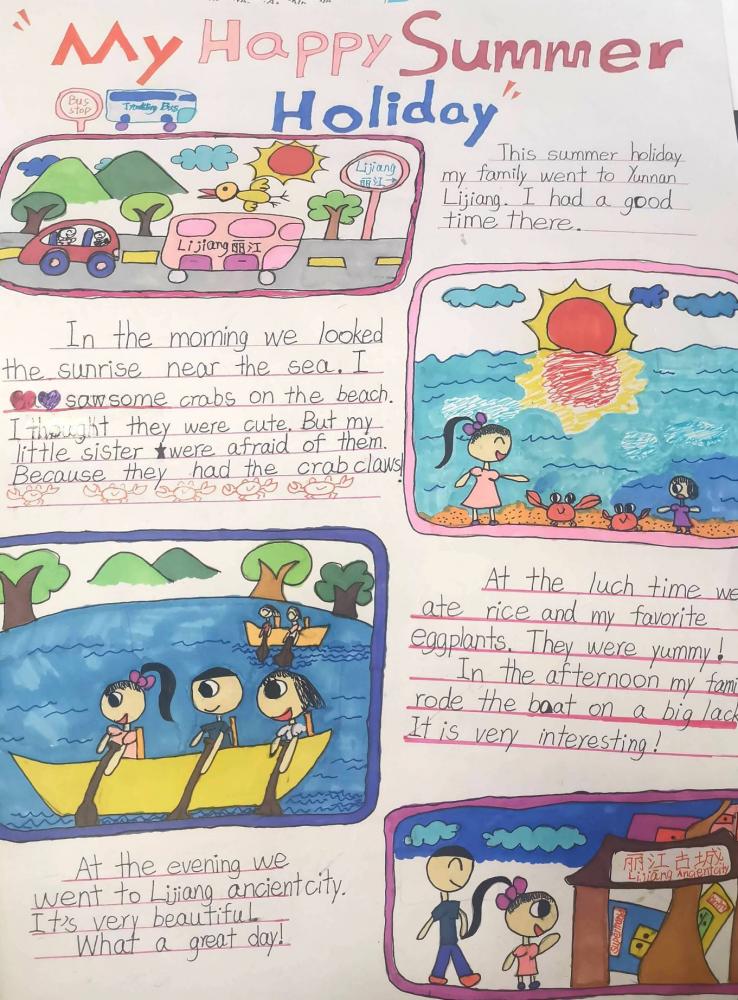 "My Happy Summer
Holiday"
Bus
stop
This summer holiday
my family went to Yunnan
Lijiang. I had a good
time there.
Lijiang
丽江
Lijiang丽江
In the morning we looked
the sunrise near the sea. I
saw some crabs on the beach.
I thought they were cute. But my
little sister were afraid of them.
Because they had the crab claws!
At the luch time we
ate rice and my favorite
eggplants. They were yummy!
In the afternoon my fami
rode the boat on a big lack
It is very interesting!
At the evening we
went to Lijiang ancient city.
It's very beautiful
What a great day!
丽江古城
Lijiang Ancient city